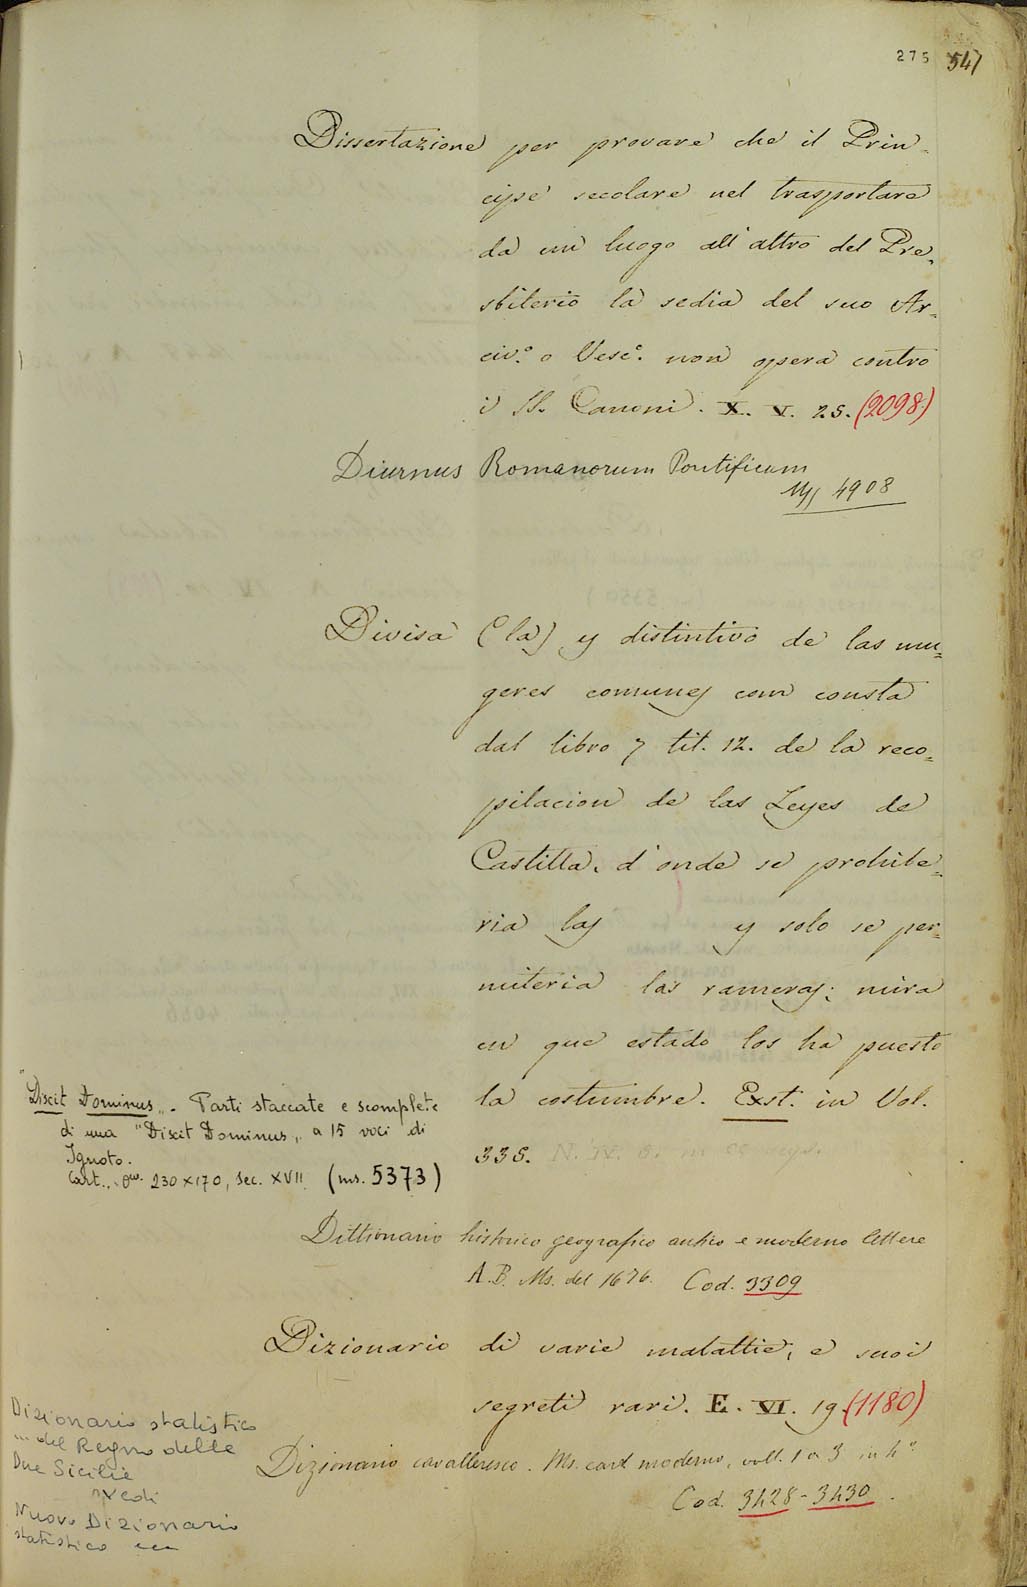 275 547
Dissertazione per provare che il Prin-
cipe secolare nel trasportare
da un luogo all'altro del Pre-
sbiterio la sedia del suo Ar-
civ.º o Vesc.º non opera contro
i SS. Canoni. X. V. 25. (2098)
Diurnus Romanorum Pontificum
Mss 4908
Divisa (la) y distintivo de las mu-
geres comunes com consta
dal libro 7 tit. 12. de la reco-
pilacion de las Leyes de
Castilla, d'onde se prohibe-
ria las y solo se per-
miteria las rameras; mira
en que estado los ha puesto
la costumbre. Exst. in Vol.
335.
"Dixit Dominus". Parti staccate e scomplete
di una "Dixit Dominus" a 15 voci di
Ignoto.
Cart., 230 x 170, sec. XVII (ms. 5373)
Dittionario historico geografico antico e moderno lettere
A.B. Ms. del 1676. Cod. 3309
Dizionario di varie malattie, e suoi
segreti rari. E. VI. 19. (1180)
Dizionario cavalleresco. Ms. cart. moderno, voll. 1 a 3 in 4º
Cod. 3428-3430.
Dizionario statistico
... del Regno delle
Due Sicilie
vedi
Nuovo Dizionario
statistico ecc